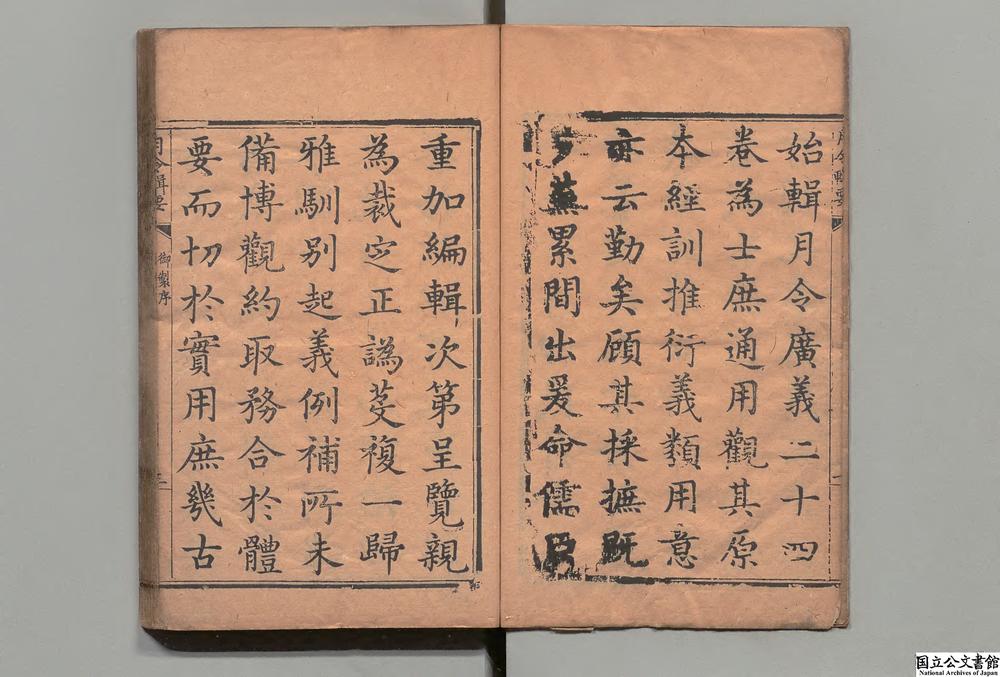 月令輯要
始輯月令廣義二十四
卷為士庶通用觀其原
本經訓推衍義類用意
亦云勤矣顧其採摭既
多蕪累間出爰命儒臣
重加編輯次第呈覽親
為裁定正譌芟複一歸
雅馴別起義例補所未
備博觀約取務合於體
要而切於實用庶幾古
月令輯要 御製序
国立公文書館
National Archives of Japan